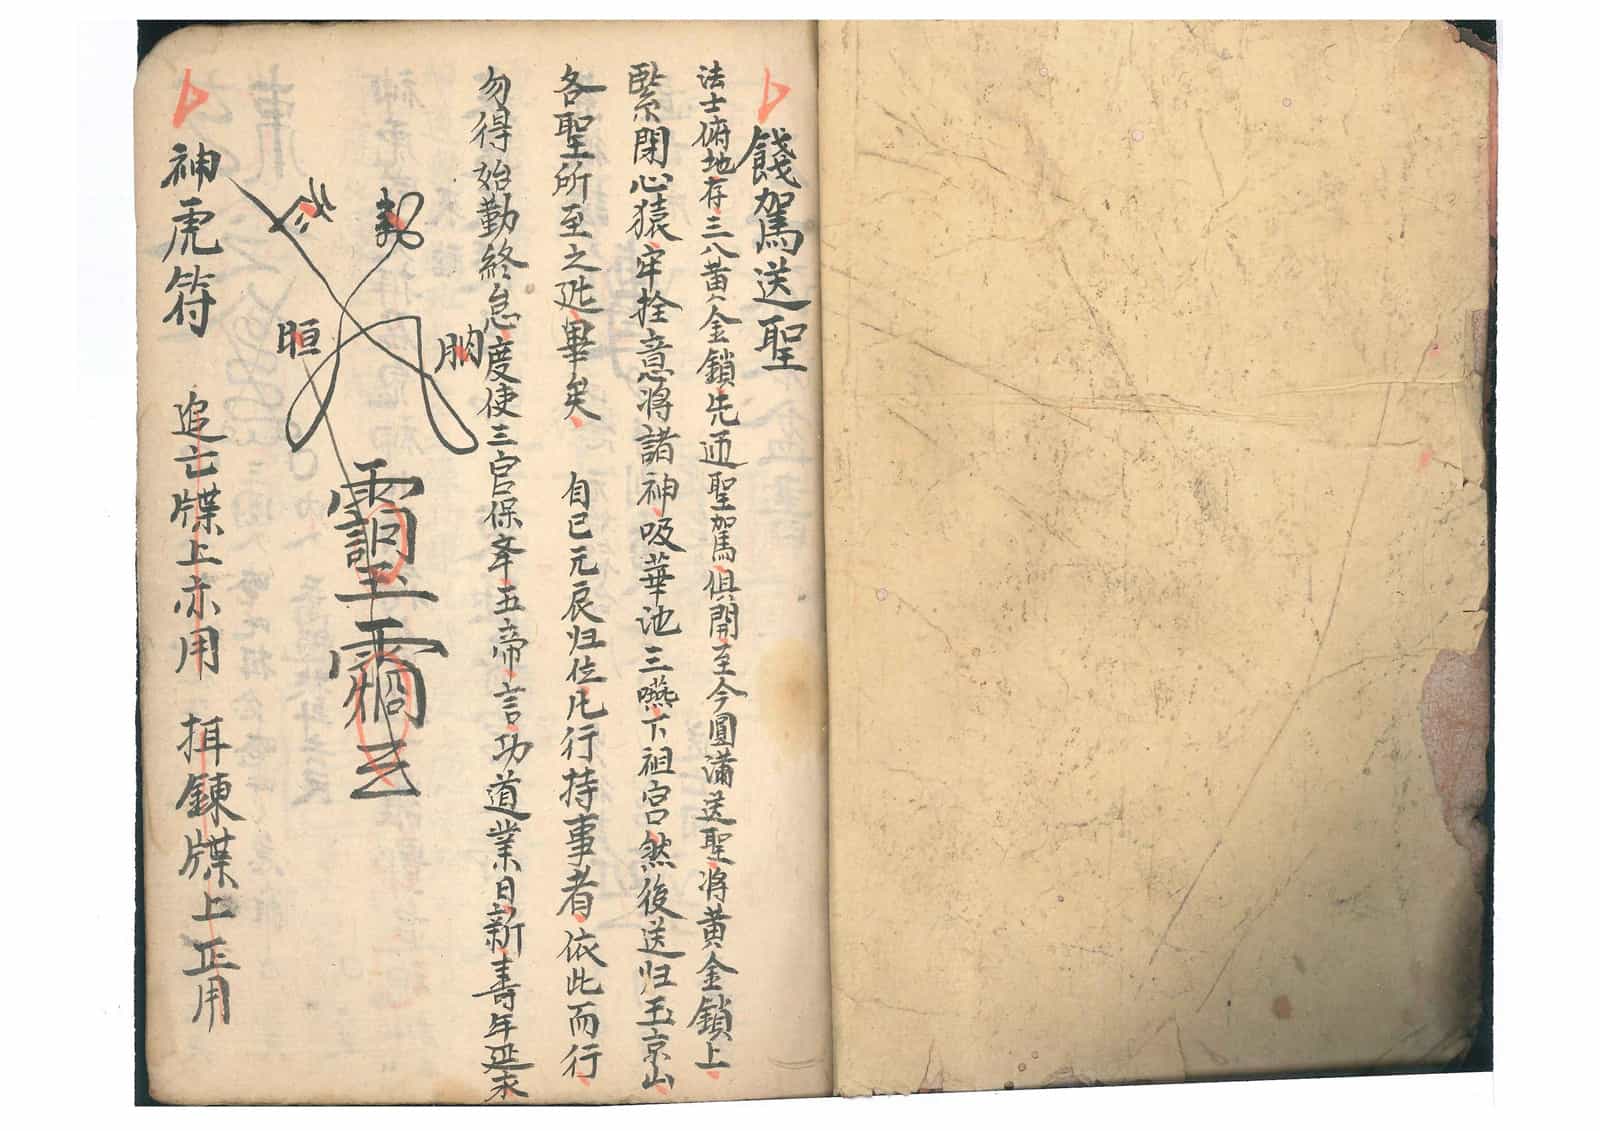 餞駕送聖
法士俯地存三八黃金鎖先通聖駕俱開至今圓滿送聖將黃金鎖上
緊閉心猿牢拴意將諸神吸華池三嚥下祖宮然後送归玉京山
各聖所至之 畢矣 自己元辰归位凡行持事者依此而行
勿得始勤終怠度使三官保奉五帝言功道業日新壽年延永
神虎符 追亡牒上亦用 拜鍊牒上正用